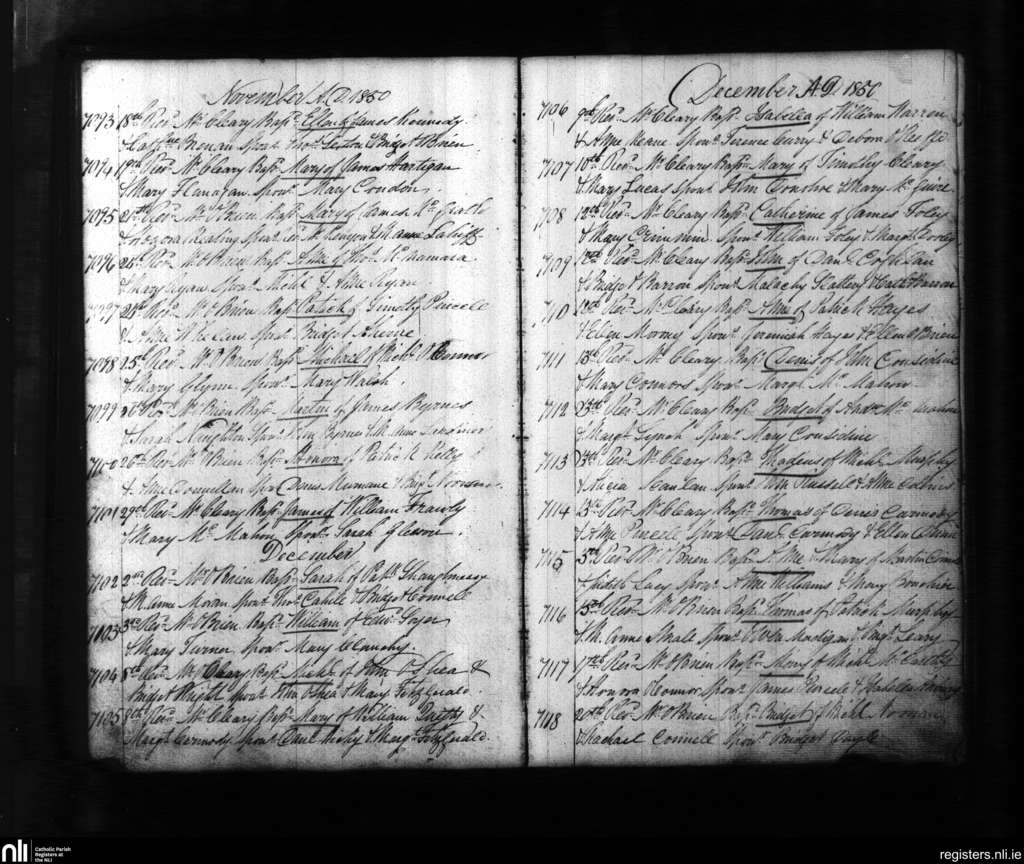 November A.D. 1850
7093 18th Revd. Mr. Cleary Bapt. Ellen of James Kennedy
& Cathne. Sponr. Thos. Sexton & Bridget O'Brien
7094 19th Revd. Mr. Cleary Bapt. Mary of James Hartigan
& Mary Flanagan Sponr. Mary Condon.
7095 21st Revd. Mr. O'Brien Bapt. Mary of James Mc. Grath
& Honora Keating Sponr. & M. anne
7096 24th Revd. Mr. O'Brien Bapt. Anne of Thos. McNamara
& Mary Sponr. Michl. & Anne Ryan
7097 24th Revd. Mr. O'Brien Bapt. Patrick of Timothy Purcell
& Anne Sponr. Bridget
7098 25th Revd. Mr. O'Brien Bapt. Michael of Richd. O'Connor
& Mary Glynn Sponr. Mary Walsh.
7099 26th Revd. Mr. O'Brien Bapt. Martin of James Byrnes
& Sarah Naughton Sponr. John Byrnes & M. Anne
7100 26th Revd. Mr. O'Brien Bapt. Honora of Patrick Kelly
& Anne Connellan Spor. Denis Murnane & Brigt.
7101 29th Revd. Mr. Cleary Bapt. James of William Frawly
& Mary Mc. Mahon Sponr. Sarah Gleeson.
December
7102 2nd Revd. Mr. O'Brien Bapt. Sarah of Patk. Shaughnessy
& M. anne Moran Sponr. Thos. Cahill & Bridget Connell
7103 3rd Revd. Mr. O'Brien Bapt. William of Edwd.
& Mary Turner Sponr. Mary Clanchy.
7104 8th Revd. Mr. Cleary Bapt. Michl. of John O'Shea &
Bridget Wright Sponr. John O'Shea & Mary Fitzgerald.
7105 8th Revd. Mr. Cleary Bapt. Mary of William &
Margt. Carmody Sponr. Danl. & Margt. Fitzgerald.
December A.D. 1850
7106 9th Revd. Mr. Cleary Bapt. Isabella of William Warren
& Anne Keane Sponr. Terence Curry & Debora
7107 10th Revd. Mr. Cleary Bapt. Mary of Timothy Cleary
& Mary Lucas Sponr. John Donohoe & Mary Mc. Guire
7108 12th Revd. Mr. Cleary Bapt. Catherine of James Foley
& Mary Crimmin Sponr. William Foley & Margt.
7109 12th Revd. Mr. Cleary Bapt. John of Danl. Coghlan
& Bridget Warron Sponr. Malachy Slattery & Cath. Warron
7110 12th Revd. Mr. Cleary Bapt. Anne of Patrick Hayes
& Ellen Morony Sponr. Jeremiah Hayes & Ellen O'Brien
7111 13th Revd. Mr. Cleary Bapt. Denis of John Considine
& Mary Connors Sponr. Margt. Mc. Mahon
7112 Revd. Mr. Cleary Bapt. Bridget of Andw. Mc. Mahon
& Margt. Lynch Sponr. Mary Considine
7113 14th Revd. Mr. Cleary Bapt. Thadeus of Michl. Murphy
& Alicia Scanlan Sponr. Wm. Russell & Anne
7114 Revd. Mr. Cleary Bapt. Thomas of Denis Carmody
& Anne Purcell Sponr. Danl. Carmody & Ellen
7115 Revd. Mr. O'Brien Bapt. Anne Mary of Martin
& Judith Lacy Sponr. Anne Williams & Mary Donohoe
7116 15th Revd. Mr. O'Brien Bapt. Thomas of Patrick Murphy
& M. Anne Sponr. Owen Madigan & Brigt. Leary
7117 17th Revd. Mr. O'Brien Bapt. Mary of Michl. Mc. Carthy
& Honora O'Connor Sponr. James Purcell &
7118 20th Revd. Mr. O'Brien Bapt. Bridget of Michl. Noonan
& Rachael Connell Sponr. Bridget
nli
Catholic Parish
Registers at
the NLI
registers.nli.ie